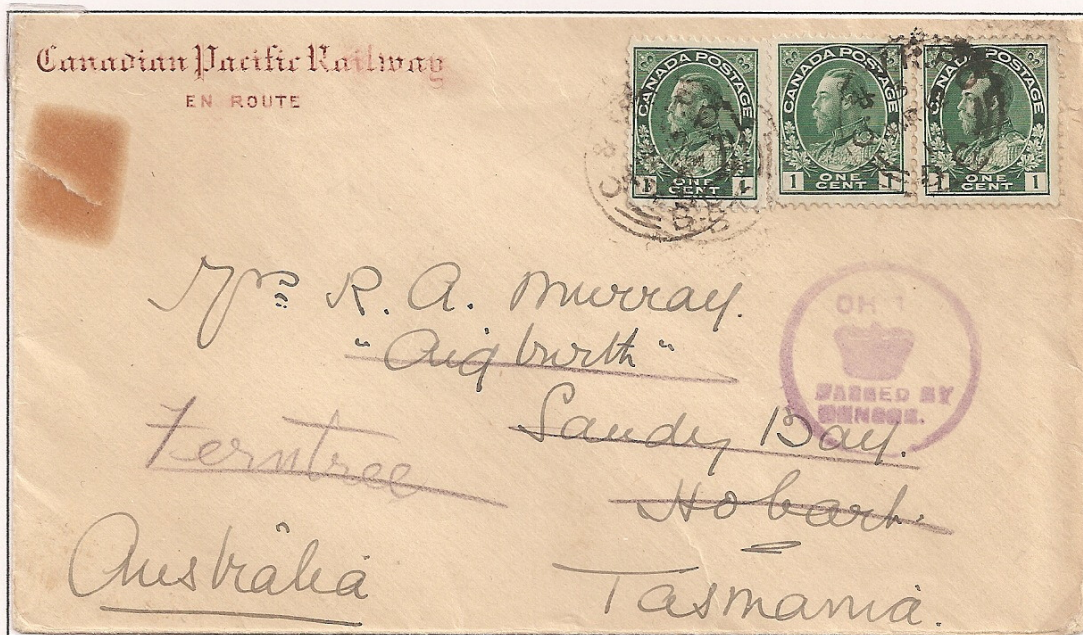 Canadian Pacific Railway
EN ROUTE
CANADA POSTAGE
1 ONE CENT 1
CANADA POSTAGE
1 ONE CENT 1
CANADA POSTAGE
1 ONE CENT 1
Mrs R. A. Murray.
"Aigburth"
Sandy Bay.
Hobart.
Tasmania.
Ferntree
Australia
PASSED BY
CENSOR.